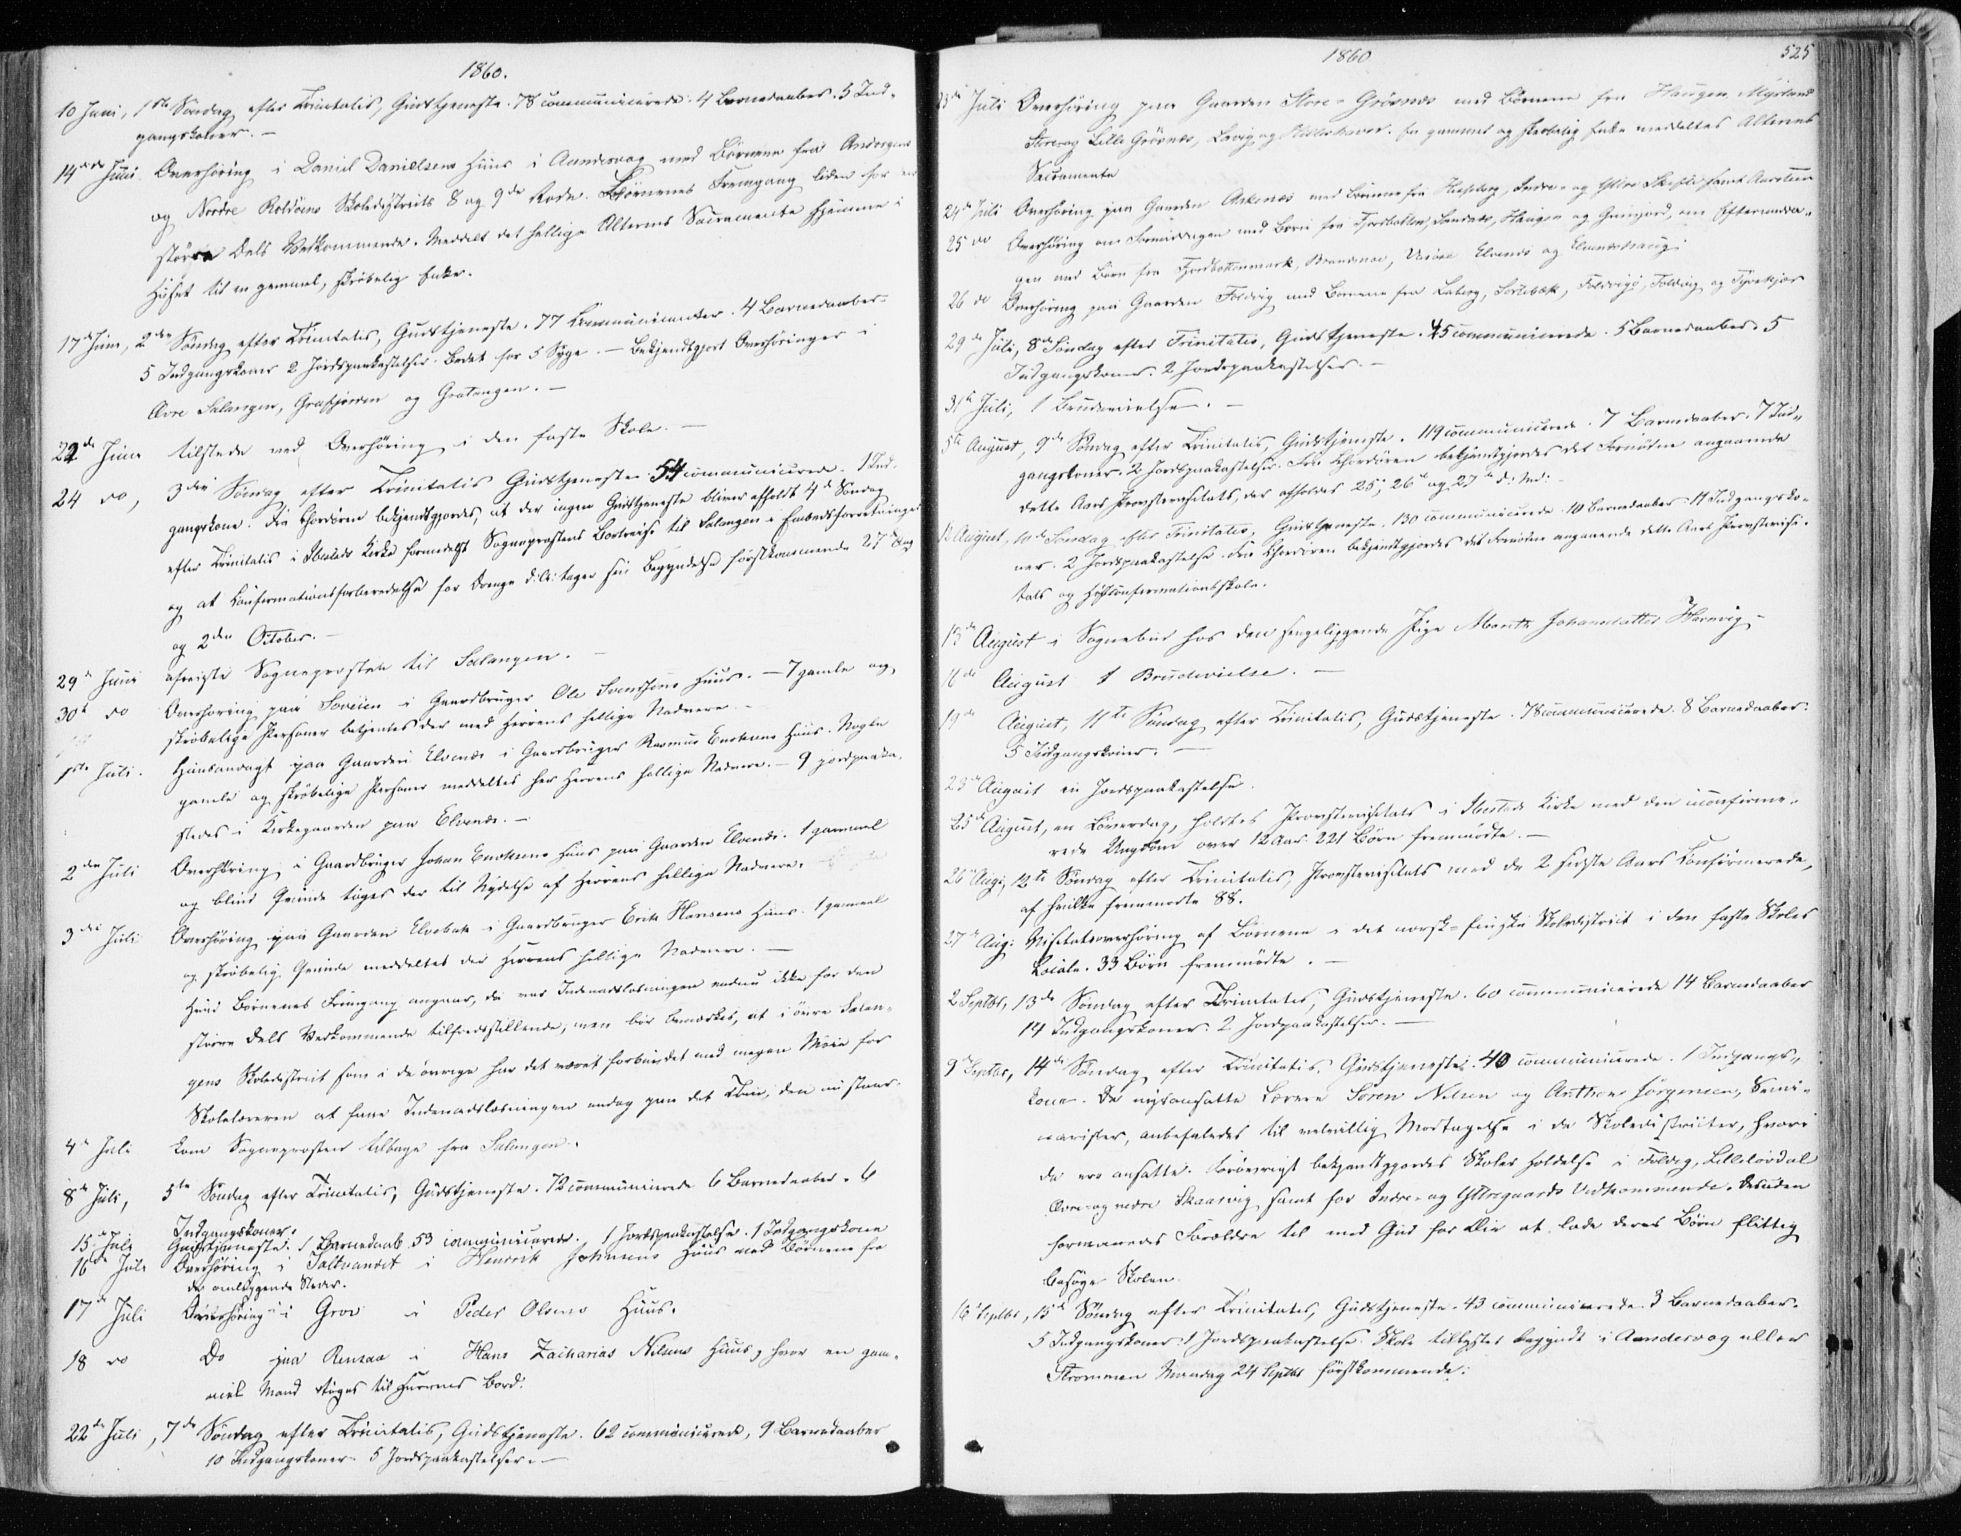 1860.
10 Juni, 1ste Søndag efter Trinitatis, Gudstjeneste. 78 communicerede. 4 Barnedaaber. 5 Ind-
gangskoner. —
14de Juni Overhøring i Daniel Danielsens Huus i Aandervaag med Børnene fra Andorgens
og Nordre Roldøens Skoledistricts 8 og 9de Rode. Børnenes Fremgang liden for en
større Dels Vedkommende. Meddelt det hellige Alterens Sacramente hjemme i
Huset til en gammel, skrøbelig Enke.
17de Juni, 2den Søndag efter Trinitatis, Gudstjeneste. 77 Communicanter. 4 Barnedaaber.
5 Indgangskoner 2 Jordspaakastelser. Bedet for 5 Syge. — Bekjendtgjort Overhøringer i
Øvre Salangen, Gravfjorden og Gratangen. —
22de Juni tilstede ved Overhøring i den faste Skole. —
24 do, 3die Søndag efter Trinitatis Gudstjeneste 54 communicerede. 1 Ind-
gangskone. Fra Chordøren bekjendtgjordes, at der ingen Gudstjeneste bliver afholdt 4de Søndag
efter Trinitatis i Ibestads Kirke formedelst Sogneprestens Bortreise til Salangen i Embedsforretninger
og at Confirmationsforberedelse for Drenge d: A: tager sin Begyndelse førstkommende 27de Aug
og 2den October. —
29de Juni afreiste Sognepresten til Salangen. —
30te do Overhøring paa Soveien i Gaardbruger Ole Svendsens Huus. — 7 gamle og
skrøbelige Personer betjentes der med Herrens hellige Nadvere. —
1ste Juli. Huusandagt paa Gaarden Elvenes i Gaardbruger Rasmus Enoksens Huus. Nogle
gamle og skrøbelige Personer meddeltes her Herrens hellige Nadvere. — 9 jordpaaka-
stedes i Kirkegaarden paa Elvenes. —
2den Juli Overhøring i Gaardbruger Johan Enoksens Huus paa Gaarden Elvenes. 1 gammel
og blind Qvinde toges der til Nydelse af Herrens hellige Nadvere.
3die Juli Overhøring paa Gaarden Elvebak i Gaardbruger Erik Hansens Huus. 1 gammel
og skrøbelig Qvinde meddeltes der Herrens hellige Nadvere. —
Hvad Børnenes Fremgang angaar, da var Indenadslæsningen endnu ikke for den
større Dels Vedkommende tilfredsstillende, men bør bemærkes, at i øvre Salan-
gens Skoledistrict som i de øvrige har det været forbundet med megen Møie for
Skolelæreren at faae Indenadslæsningen endog paa det Trin, den nu staar.
4de Juli kom Sognepresten tilbage fra Salangen.
8de Juli, 5te Søndag efter Trinitatis, Gudstjeneste. 72 communicerede 6 Barnedaaber. 6
Indgangskoner.
15de July Gudstjeneste. 1 Barnedaab 53 communicerede. 1 Jordspaakastelse. 1 Indgangskone
16de Juli Overhøring i Saltvandet i Henrik Johnsens Huus med Børnene fra
de omliggende Steder.
17de Juli Overhøring i Grov i Peder Olsens Huus.
18 do Do paa Rensaa i Hans Zacharias Nilsens Huus, hvor en gam-
mel Mand toges til Herrens Bord.
22de Juli, 7de Søndag efter Trinitatis, Gudstjeneste. 62 communicerede, 9 Barnedaaber
10 Indgangskoner 5 Jordspaakastelser. —
1860
525
23de Juli Overhøring paa Gaarden Store-Grøvnes med Børnene fra Haugen, Myrland
Store og Lille Grøvnes, Lavig og . En gammel og skrøbelig Enke meddeltes Alterens
Sacramente
24de Juli Overhøring paa Gaarden Aakenes med Børnene fra , Indre- og Yttre samt
25 do Overhøring om Formiddagen med Børn fra Fjordbotten, Sandnes, Haugen og , om Eftermidda-
gen med Børn fra Fjordbottenmark, Brandmoe, Elvenes og
26 do Overhøring paa Gaarden Foldvig med Børnene fra Laberg, Sortebæk, Foldvigø, Foldvig og
29de Juli, 8de Søndag efter Trinitatis, Gudstjeneste. 45 communicerede. 5 Barnedaaber. 5
Indgangskoner. 2 Jordspaakastelser. —
31te Juli, 1 Brudevielse. —
5te August, 9de Søndag efter Trinitatis, Gudstjeneste. 119 communicerede. 7 Barnedaaber. 7 Ind-
gangskoner. 2 Jordspaakastelser. Fra Chordøren bekjendtgjordes det Fornødne angaaende
dette Aars Provstevisitats, der afholdes 25de, 26de og 27de d: Md: —
12 August, 10de Søndag efter Trinitatis, Gudstjeneste. 130 communicerede 10 Barnedaaber 11 Indgangsko-
ner. 2 Jordspaakastelser. Fra Chordøren bekjendtgjordes det Fornødne angaaende dette Aars Provstevisi-
tats og Høstconfirmationsskole.
13de August i Sognebud hos den sengeliggende Pige Marith Johansdatter Hamvig —
16de August 1 Brudevielse. —
19de August, 11te Søndag efter Trinitatis, Gudstjeneste. 78 communicerede. 8 Barnedaaber.
5 Indgangskoner. —
23de August en Jordspaakastelse.
25de August, en Løverdag, holdtes Provstevisitats i Ibestads Kirke med den uconfirme-
rede Ungdom over 12 Aar. 221 Børn fremmødte. —
26de Aug:, 12te Søndag efter Trinitatis, Provstevisitats med de 2 sidste Aars Confirmerede,
af hvilke fremmødte 88.
27de Aug: Visitatsoverhøring af Børnene i det norsk-finske Skoledistrict i den faste Skoles
Locale. 33 Børn fremmødte. —
2 Septbr, 13de Søndag efter Trinitatis, Gudstjeneste. 60 communicerede 14 Barnedaaber
14 Indgangskoner. 2 Jordpaakastelser. —
9de Septbr, 14de Søndag efter Trinitatis, Gudstjeneste. 40 communicerede. 1 Indgangs-
kone. De nyansatte Lærere Søren Nilsen og Anthon Jørgensen, Semi-
narister, anbefaledes til velvillig Modtagelse i de Skoledistricter, hvori
de ere ansatte. Forøvrigt bekjendtgjordes Skolers Holdelse i Foldvig, Lilleløvdal
Øvre- og nedre Skaarvig samt for Indre- og Yttregaards Vedkommende. Desuden
formanedes Forældre til med Gud for Øie at lade deres Børn flittig
besøge Skolen.
16 Septbr, 15de Søndag efter Trinitatis, Gudstjeneste. 43 communicerede. 3 Barnedaaber.
5 Indgangskoner. 1 Jordspaakastelse. Skole tillystes begyndt i Aandervaag eller
Strømmen Mandag 24 Septbr førstkommende.